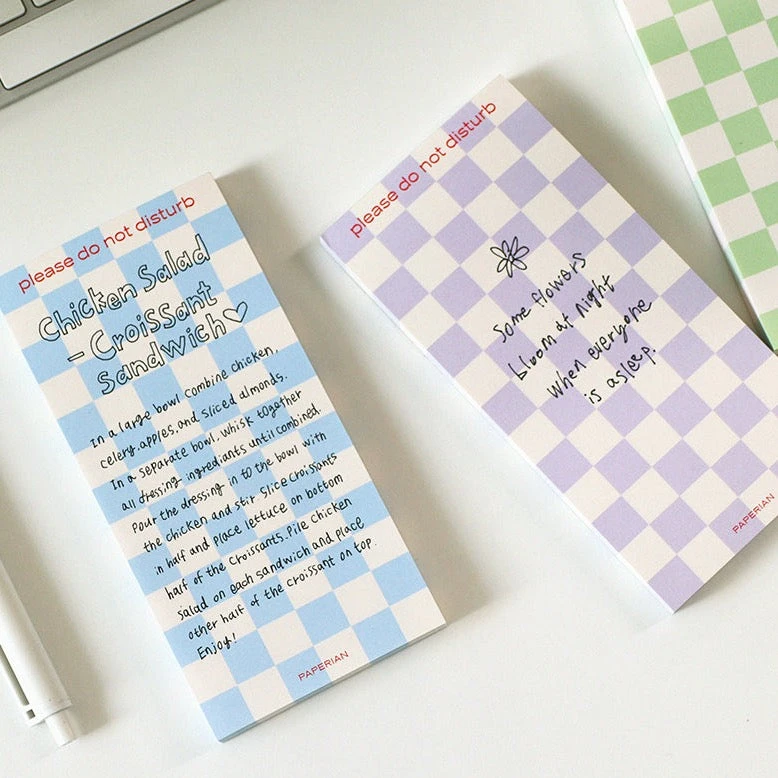 please do not disturb
Chicken Salad
- Croissant
Sandwich♡
In a large bowl combine chicken,
celery, apples, and sliced almonds.
In a separate bowl, whisk together
all dressing ingrediants until combined.
Pour the dressing in to the bowl with
the chicken and stir. Slice Croissants
in half and place lettuce on bottom
half of the Croissants. Pile Chicken
salad on each sandwich and place
other half of the croissant on top.
Enjoy!
PAPERIAN
please do not disturb
Some flowers
bloom at night
when everyone
is asleep.
PAPERIAN